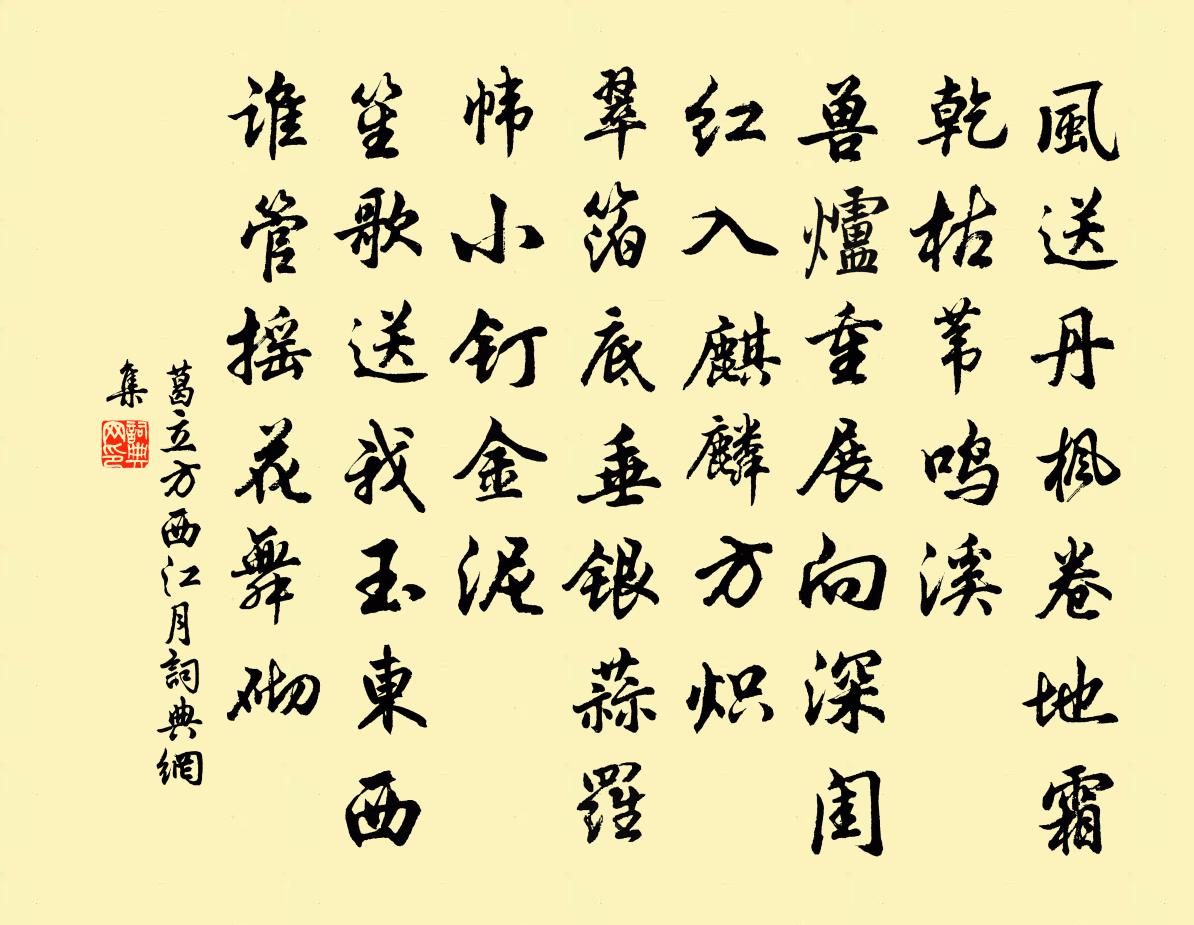 風送丹枫卷地霜
乾枯苇鸣溪
兽爐重展向深闺
红入麒麟方炽
翠箔底垂銀蒜羅
帏小钉金泥
笙歌送我玉東西
谁管摇花舞砌
葛立方西江月詞典網
集
詞典网印